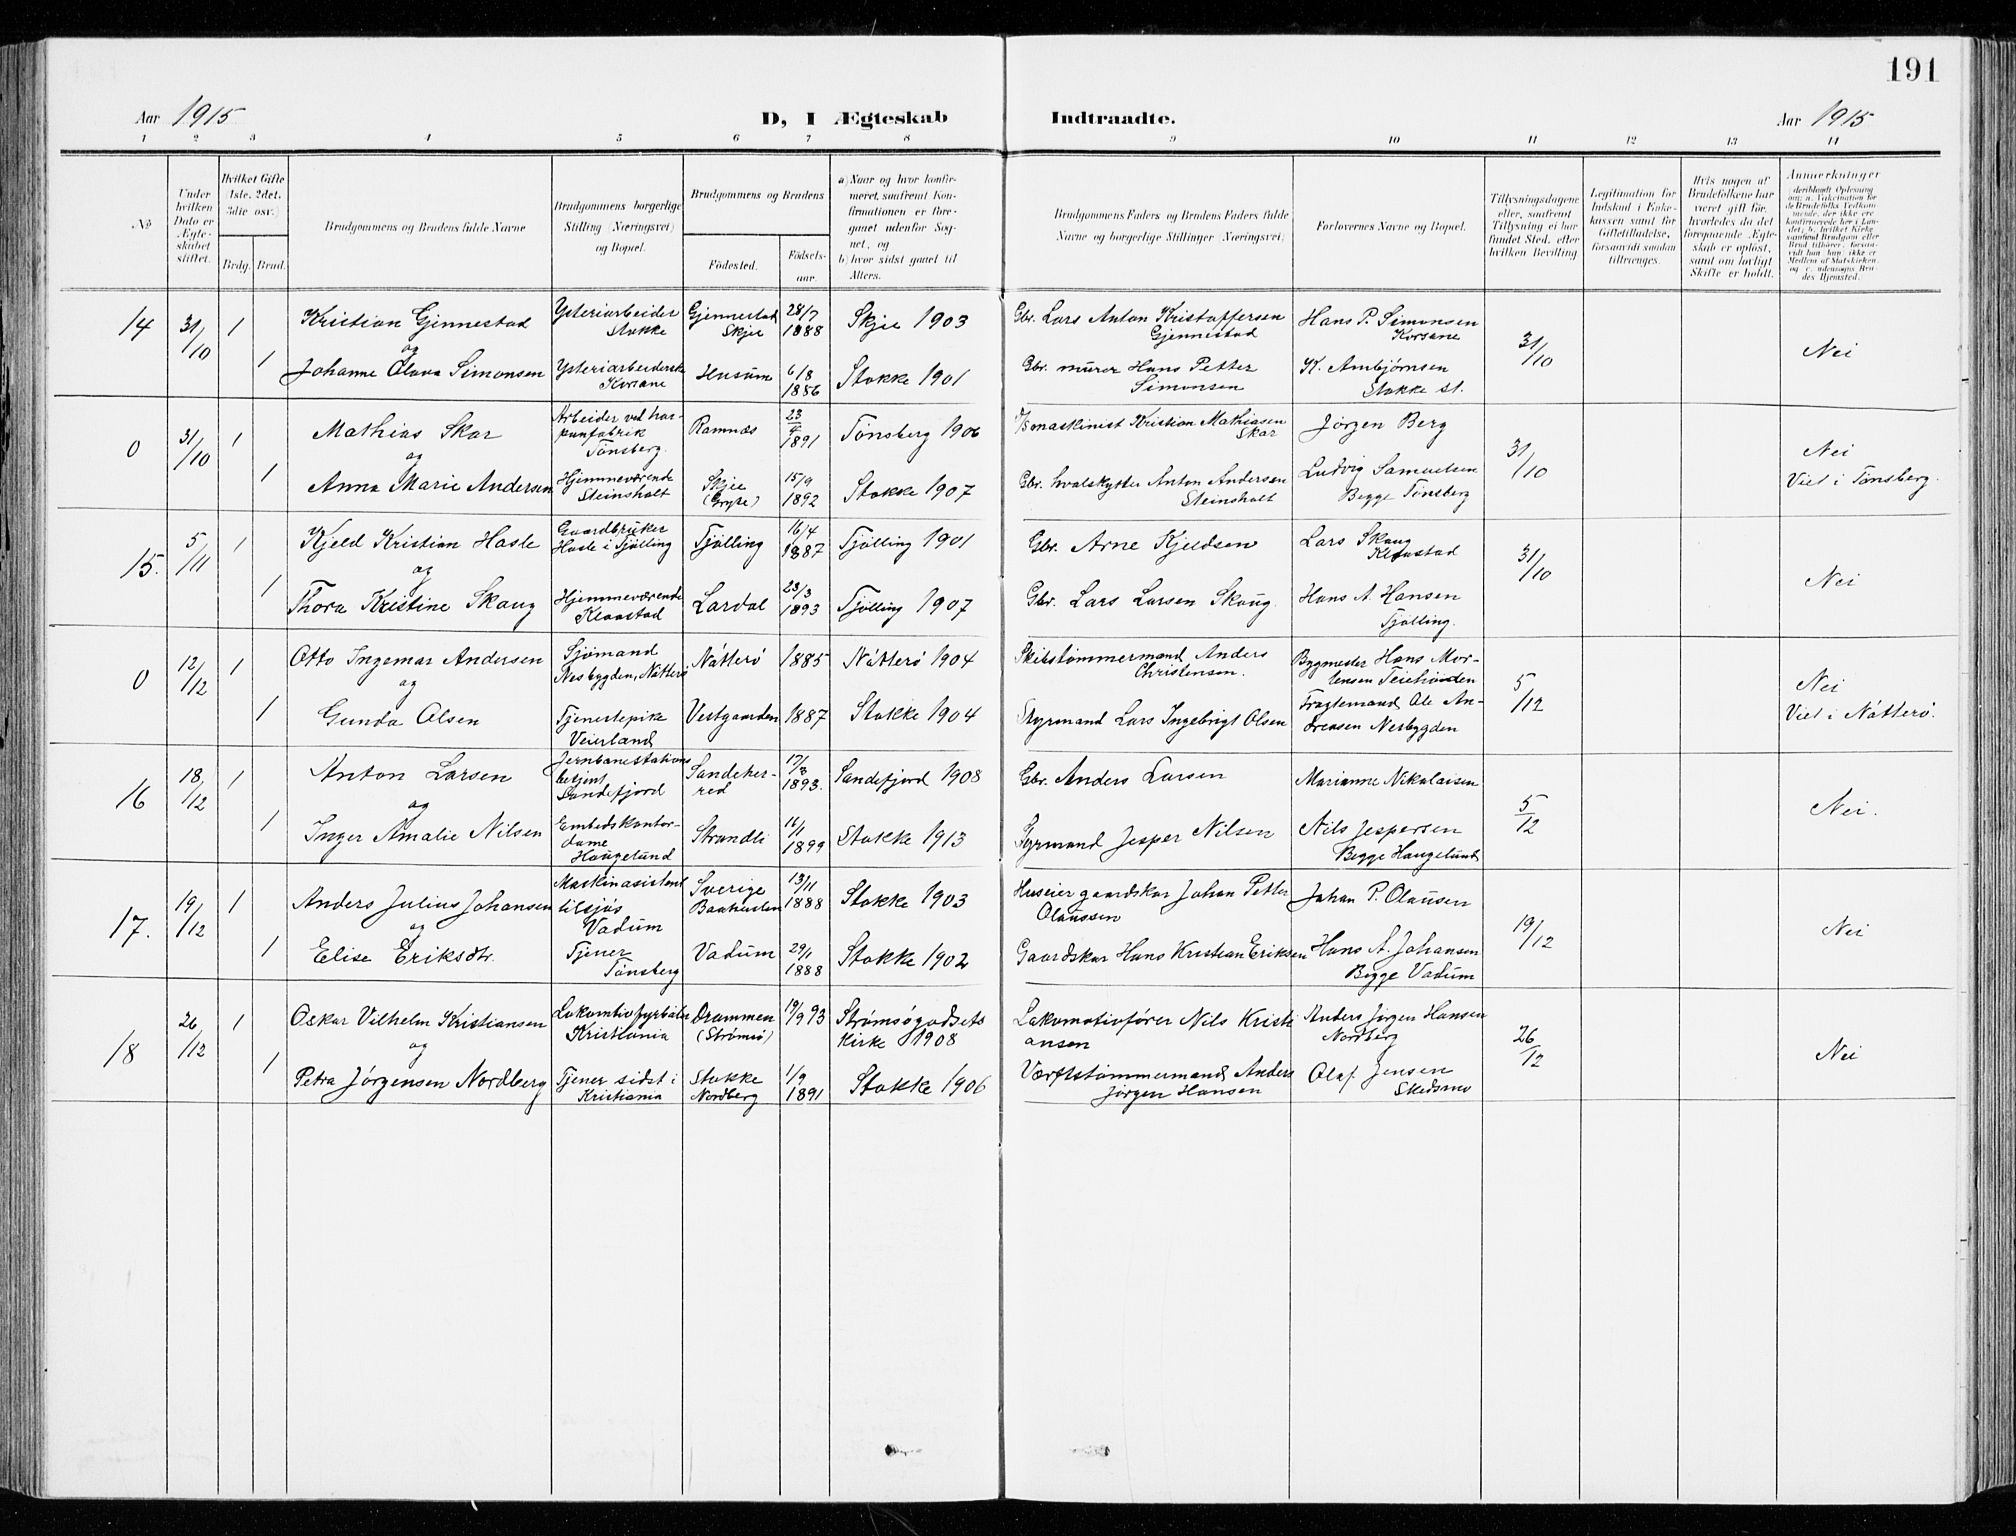 191
Aar 1915 D, I Ægteskab Indtraadte. Aar 1915
1 2 3 4 5 6 7 8 9 10 11 12 13 14
No
Under hvilken Dato er Ægteskabet stiftet.
Hvilket Gifte (1ste, 2det, 3die osv.)
Brdg. Brud.
Brudgommens og Brudens fulde Navne
Brudgommens borgerlige Stilling (Næringsvei) og Bopæl.
Brudgommens og Brudens
Födested. Födselsaar.
a) Naar og hvor konfirmeret, samfremt Konfirmationen er foregaaet udenfor Sognet, og
b) hvor sidst gaaet til Alters.
Brudgommens Faders og Brudens Faders fulde Navne og borgerlige Stillinger (Næringsvei)
Forlovernes Navne og Bopæl.
Tillysningsdagene eller, samfremt Tillysning ei har fundet Sted, efter hvilken Bevilling.
Legitimation for Indskud i Enkekassen samt for Giftetilladelse, forsaavidt saadan tiltrænges.
Hvis nogen af Brudefolkene har været gift før, hvorledes da det foregaaende Ægteskab er opløst, samt om lovligt Skifte er holdt.
Anmærkninger
14 31/10 1 Kristian Gjennestad Ysteriarbeider Stokke Gjennestad Skjee 28/7 1888 Skjee 1903 Gbr. Lars Anton Kristoffersen Gjennestad Hans P. Simonsen Korsane 31/10 Nei
og
1 Johanne Olava Simonsen Ysteriarbeiderske Korsane Husum 6/8 1886 Stokke 1901 Gbr. murer Hans Petter Simonsen K. Ambjørnsen Stokke st.
0 31/10 1 Mathias Skar Arbeider ved harpunfabrik Tønsberg. Ramnæs 23/4 1891 Tønsberg 1906 maskinist Kristian Mathiasen Skar Jörgen Berg 31/10 Nei
og
1 Anna Marie Andersen Hjemmeværende Steinsholt Skjee 15/9 1892 Stokke 1907 Gbr. hvalskytter Anton Andersen Steinsholt Ludvig Samuelsen Begge Tønsberg Viet i Tønsberg.
15. 5/11 1 Kjeld Kristian Hasle Gaardbruker Hasle i Tjølling Tjølling 16/4 1887 Tjølling 1901 Gbr. Arne Kjeldsen Lars Skaug Klaastad 31/10 Nei
og
1 Thora Kristine Skaug Hjemmeværende Klaastad Lardal 23/3 1893 Tjølling 1907 Gbr. Lars Larsen Skaug. Hans A. Hansen Tjølling.
0 12/12 1 Otto Ingemar Andersen Sjømand Nesbygden, Nøtterø Nøtterø 1885 Nøtterø 1904 Skibstømmermand Anders Christensen. Bygmester Hans Mortensen 5/12 Nei
og
1 Gunda Olsen Tjenestepike Veierland Vestgaarden 1887 Stokke 1904 Styrmand Lars Ingebrigt Olsen Fragtemand Ole Andreasen Nesbygden Viet i Nøtterø.
16 18/12 1 Anton Larsen Jernbanestationsbetjent Sandefjord Sandeherred 17/3 1893. Sandefjord 1908 Gbr. Anders Larsen Marianne Nikolaisen 5/12 Nei.
og
1 Inger Amalie Nilsen Embedskontordame Haugelund Strandli 16/1 1899 Stokke 1913 Styrmand Jesper Nilsen Nils Jespersen Begge Haugelund
17. 19/12 1 Anders Julius Johansen Maskinasistent tilsjøs Vadum Sverige Baahuslen 13/11 1888 Stokke 1903 Huseier gaardskar Johan Petter Olaussen Johan P. Olausen 19/12 Nei
og
1 Elise Eriksdtr. Tjener Tønsberg Vadum 29/1 1888 Stokke 1902 Gaardskar Hans Kristian Eriksen Hans A. Johansen Begge Vadum
18 26/12 1 Oskar Vilhelm Kristiansen Lokomtivfyrbøter Kristiania Drammen (Strømsø) 19/9 93 Strømsøgodsets Kirke 1908 Lokomotivfører Nils Kristiansen Anders Jörgen Hansen Nordberg 26/12 Nei
og
1 Petra Jørgensen Nordberg Tjener sidst i Kristiania Stokke Nordberg 1/9 1891 Stokke 1906 Værftstømmermand Anders Jörgen Hansen Olaf Jensen Skedsmo